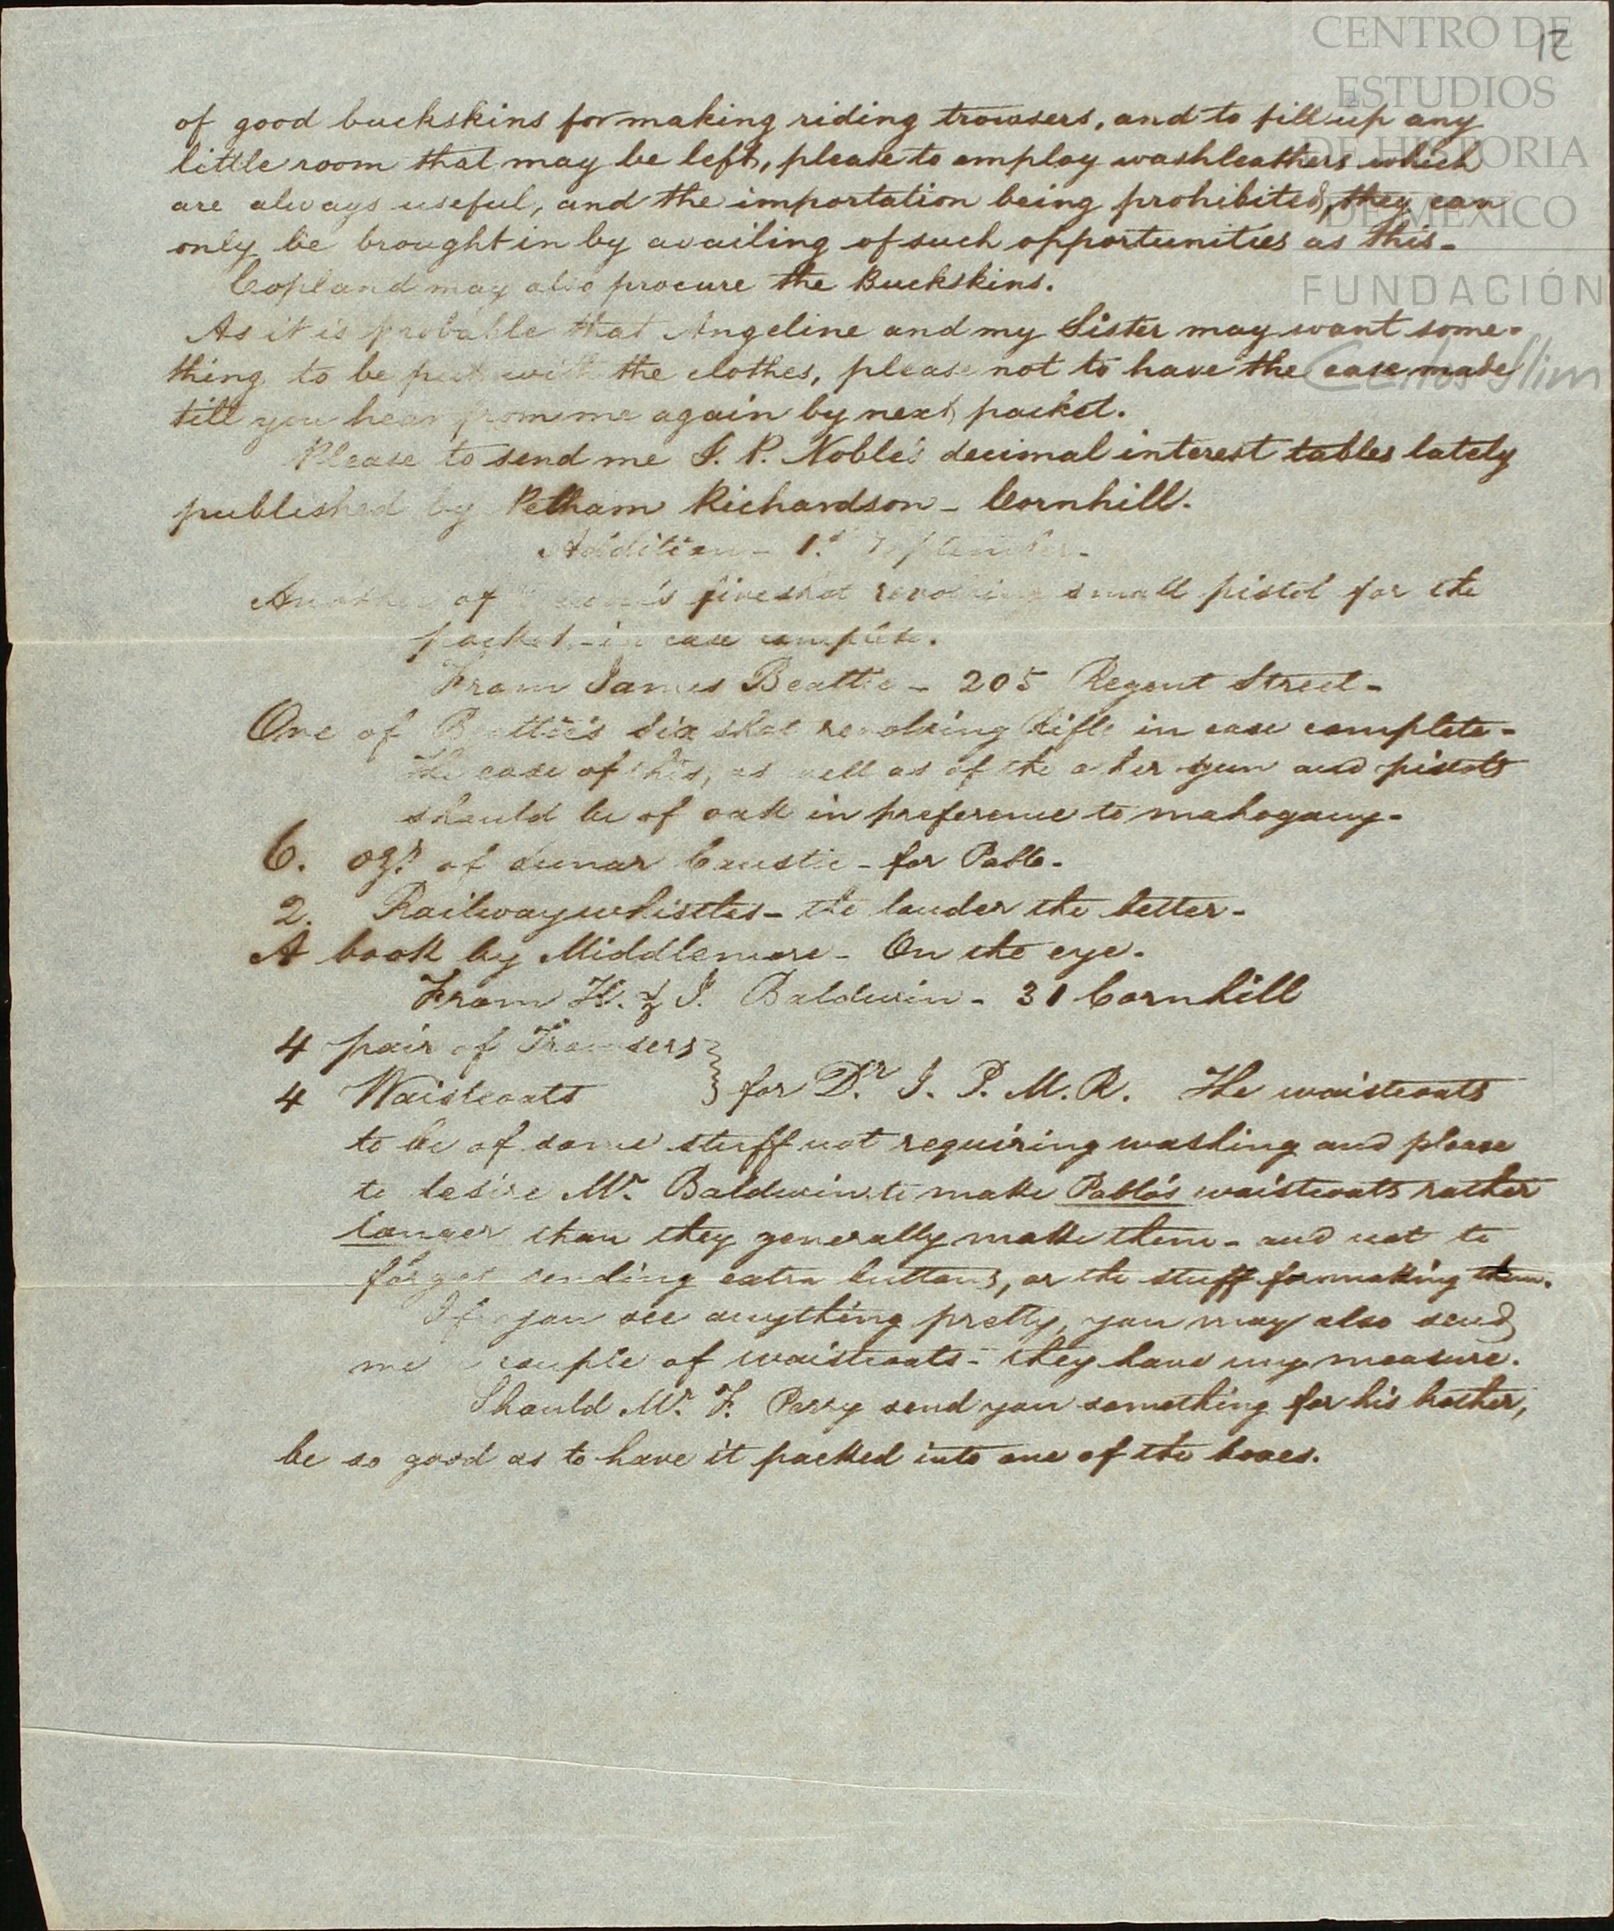 12
CENTRO DE
ESTUDIOS
DE HISTORIA
DE MEXICO
FUNDACIÓN
Carlos Slim
of good buckskins for making riding trowsers, and to fill up any
little room that may be left, please to employ washleathers which
are always useful, and the importation being prohibited, they can
only be brought in by availing of such opportunities as this -
Copland may also procure the Buckskins.
As it is probable that Angeline and my Sister may want some-
thing to be put with the clothes, please not to have the case made
till you hear from me again by next packet.
Please to send me J. P. Noble's decimal interest tables lately
published by Pelham Richardson - Cornhill.
Addition - 1st September -
Another of five shot revolving small pistol for the
pocket - in case complete.
From James Beattie - 205 Regent Street -
One of Beattie's six shot revolving Rifle in case complete -
The case of this, as well as of the other gun and pistols
should be of oak in preference to mahogany -
6. ozs. of Lunar Caustic - for Pablo -
2. Railway whistles - the louder the better -
A book by Middlemore - On the eye.
From H. & J. Baldwin - 31 Cornhill
4 pair of Trowsers
4 Waistcoats } for Dr. J. P. M. R. The waistcoats
to be of some stuff not requiring washing and please
to desire Mr. Baldwin to make Pablo's waistcoats rather
longer than they generally make them - and not to
forget sending extra buttons, or the stuff for making them.
If you see anything pretty, you may also send
me a couple of waistcoats - they have my measure.
Should Mr. F. Perry send you something for his brother,
be so good as to have it packed into one of the boxes.